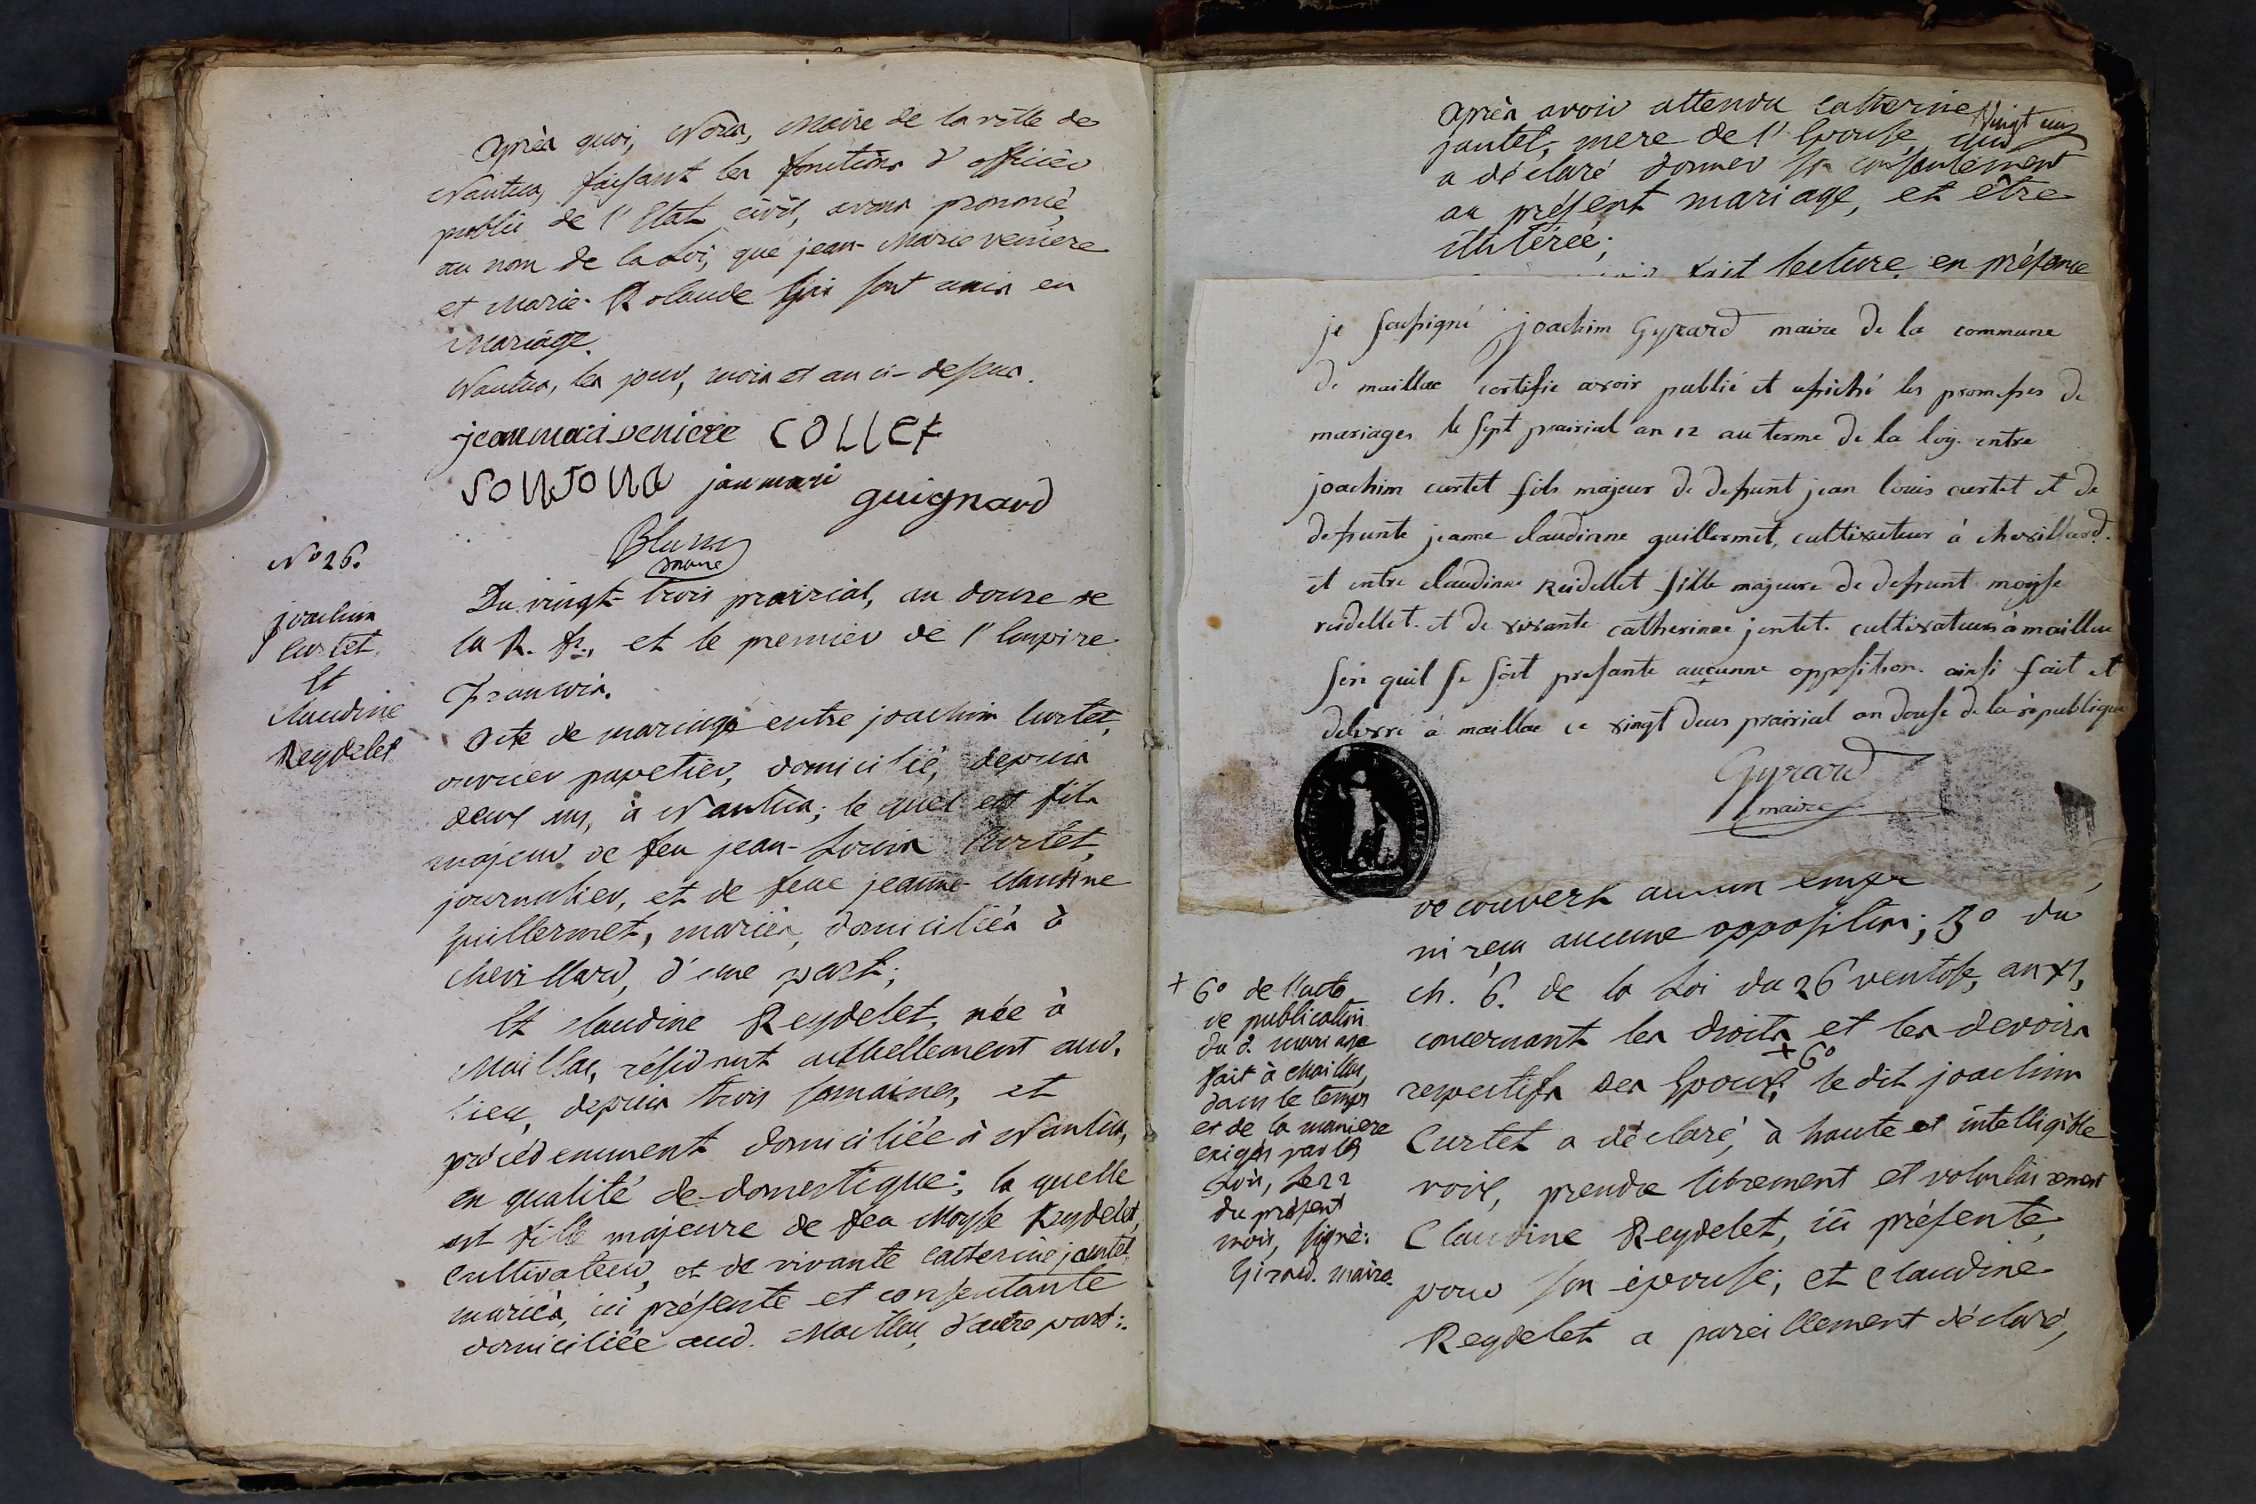 Après quoi, Nous, Maire de la ville de
Nantua, faisant les fonctions d'officier
public de l'Etat civil, avons prononcé
au nom de la Loi, que jean-Marie veniere
et Marie-Rolande sont unis en
Mariage.
Nantua, les jour, mois et an ci-dessus.
jean maria veniere COLLET
jan mari guignard
maire
No 26.
joachim
Curtet
Et
Claudine
Reydelet
Du vingt-trois prairial, an douze de
la R. fr., et le premier de l'Empire
Français.
Acte de mariage entre joachim Curtet,
ouvrier papetier, domicilié, depuis
deux ans, à Nantua; le quel est fils
majeur de feu jean-Louis Curtet,
journalier, et de feue jeanne-Claudine
guillermet, mariés, domiciliés à
Chevillard, d'une part;
Et Claudine Reydelet, née à
Maillac, résidant actuellement aud.
lieu, depuis trois semaines, et
précédemment domiciliée à Nantua,
en qualité de domestique; la quelle
est fille majeure de feu Moyse Reydelet,
Cultivateur, et de vivante Catherine jantet
mariés, ici présente et consentante
domiciliée aud. Maillac, d'autre part:
Vingt un
Après avoir attendu Catherine
jantet, mere de l'Epouse, qui
a déclaré donner son consentement
au présent mariage, et être
illitérée;
fait lecture, en présence
je soussigné joachim Gyrard maire de la commune
de maillac certifie avoir publié et afiché les promesses de
mariages le sept prairial an 12 au terme de la loy entre
joachim curtet fils majeur de defunt jean louis curtet et de
defunte jeanne claudinne guillermet, cultivateur à chevillard.
et entre claudinne Reidellet fille majeure de defunt moyse
reidellet. et de vivante catherinne jentet. cultivateurs à maillac
sen quil se soit presante aucunne opposition. ainsi fait et
delivré à maillac ce vingt deus prairial an douse de la republique
Gyrard
maire
découvert aucun empe
ni reçu aucune opposition; 5º du
ch. 6. de la Loi du 26 ventose, an XI,
concernant les droits et les devoirs
respectifs des Epoux; + 6º le dit joachim
Curtet a déclaré, à haute et intelligible
voix, prendre librement et volontairement
Claudine Reydelet, ici présente,
pour son épouse; et Claudine
Reydelet a pareillement déclaré,
+ 6º de l'acte
de publication
du d. mariage
fait à Maillac,
dans le temps
et de la maniere
exigés par les
Lois, le 22
du présent
mois, signé:
Girard. maire.